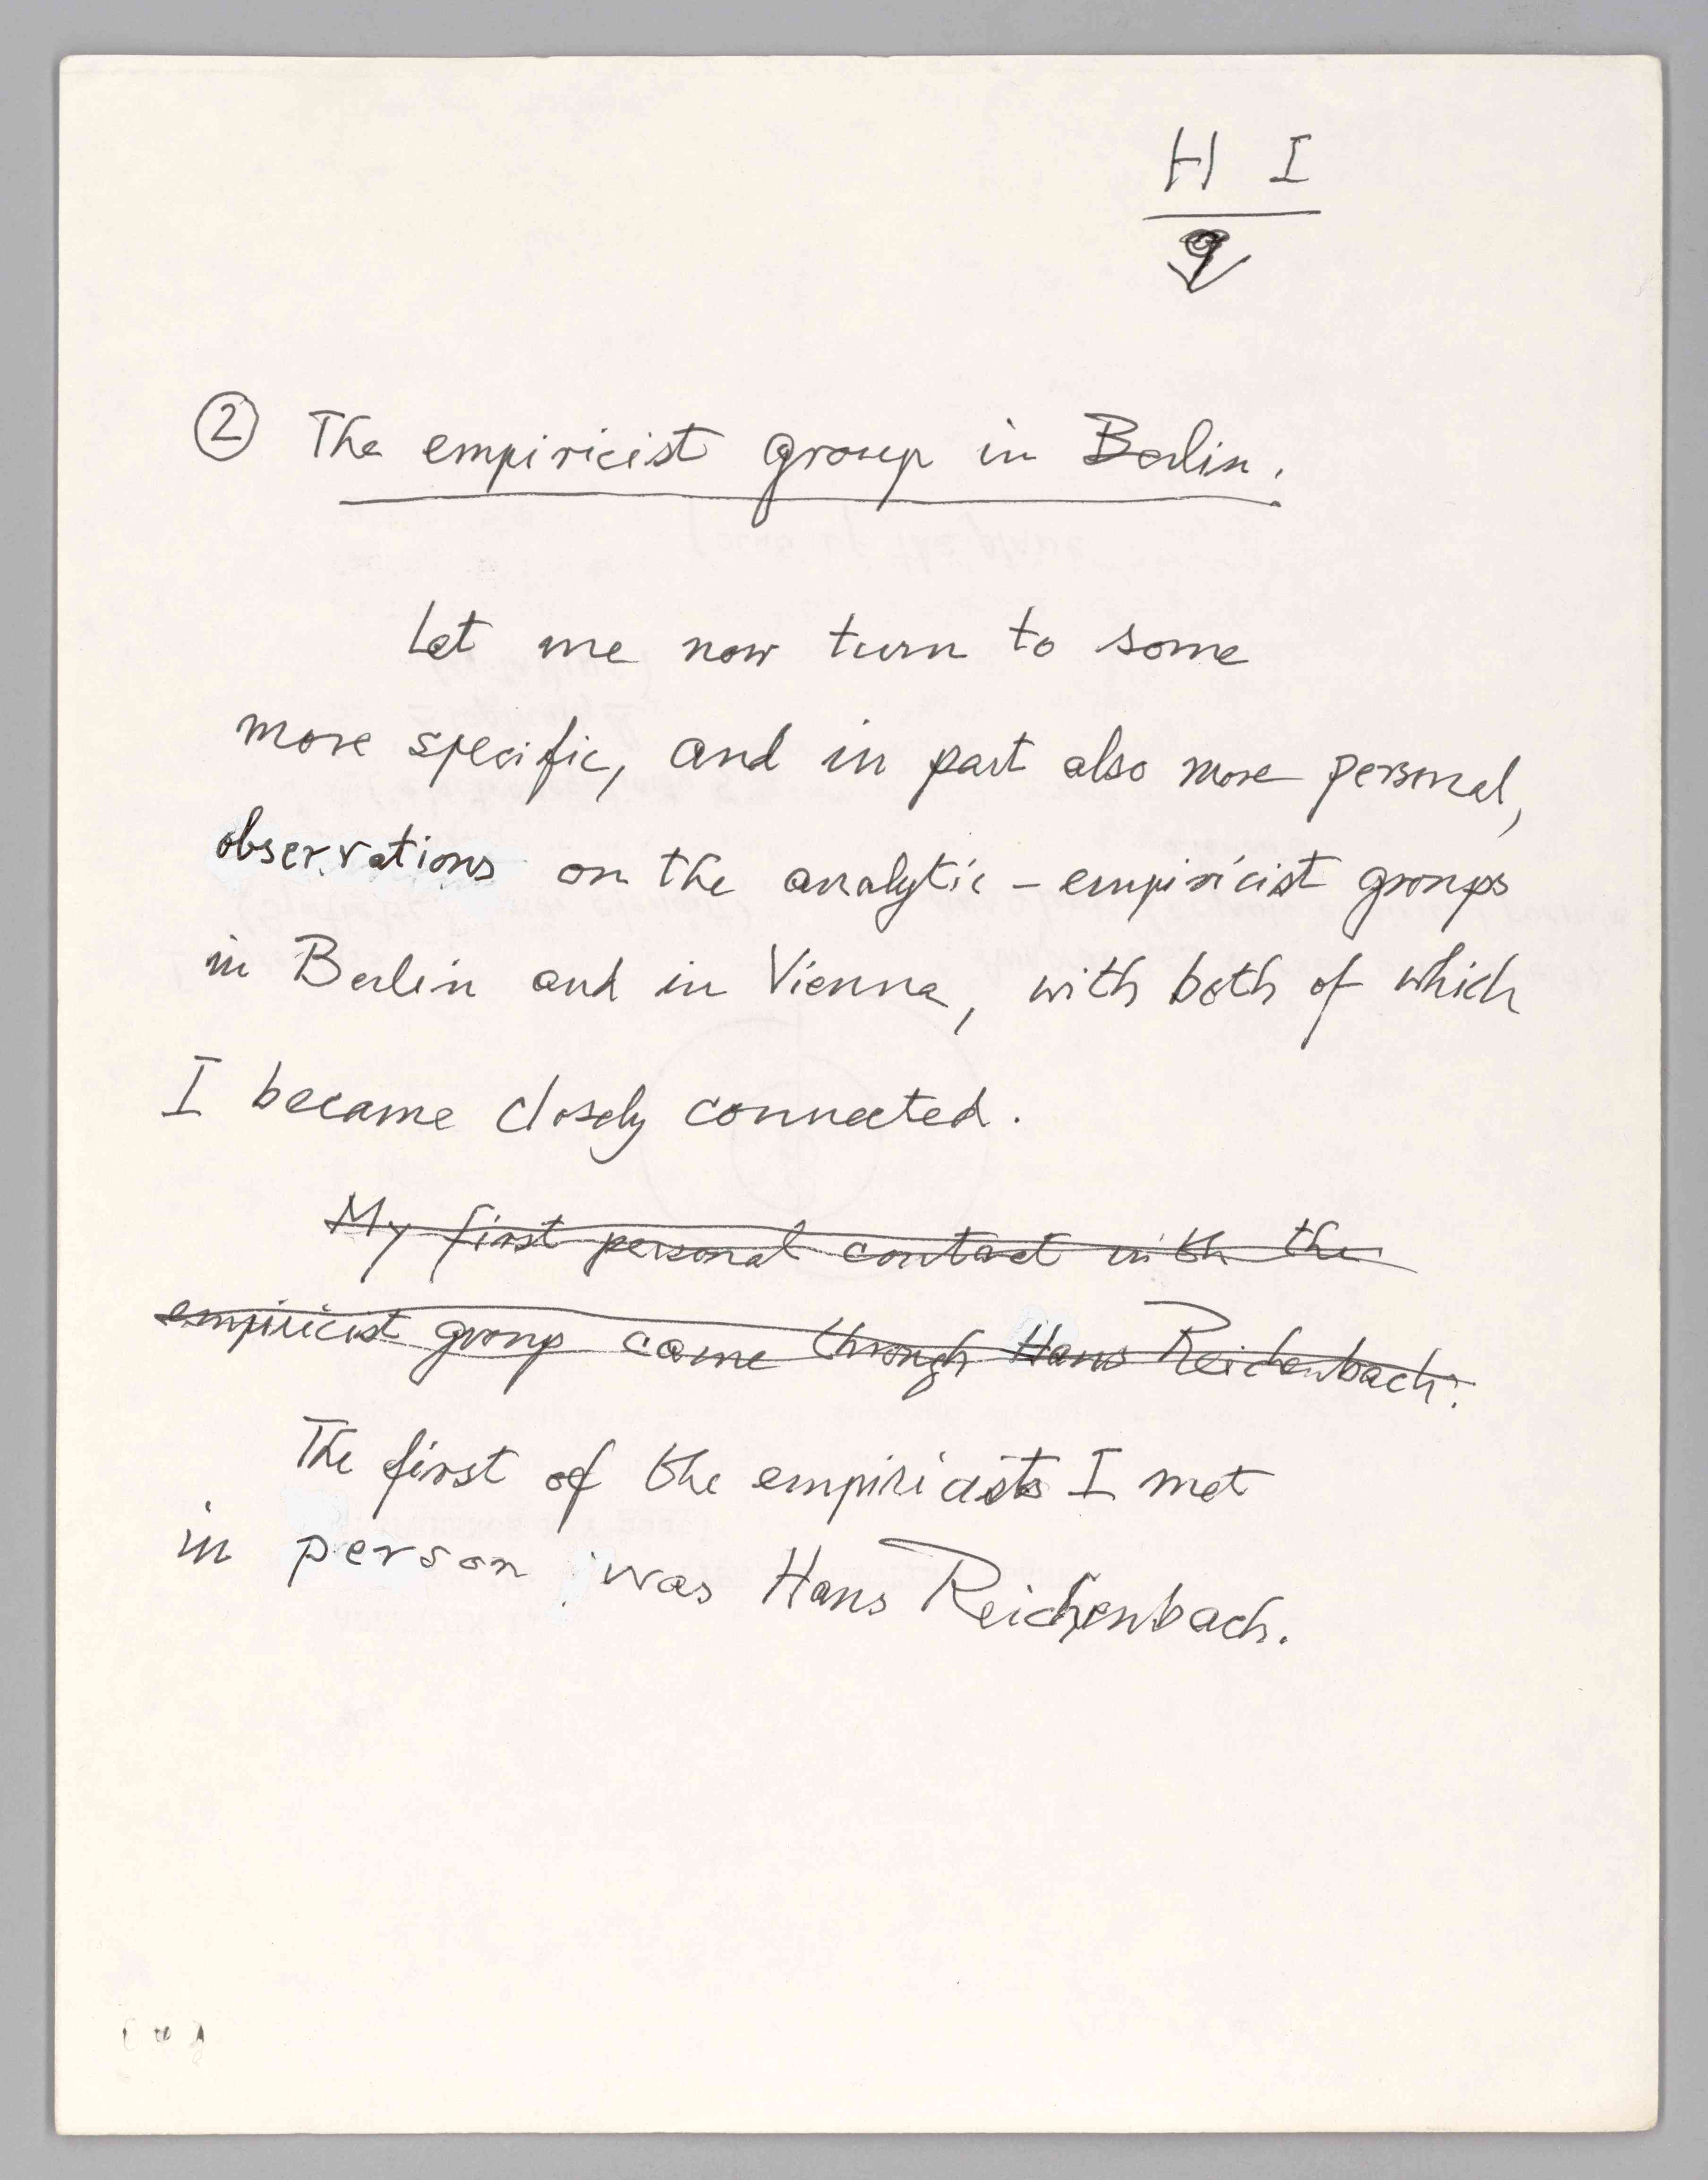 H I
9
② The empiricist group in Berlin.
Let me now turn to some
more specific, and in part also more personal,
observations on the analytic-empiricist groups
in Berlin and in Vienna, with both of which
I became closely connected.
My first personal contact with the
empiricist group came through Hans Reichenbach.
The first of the empiricists I met
in person was Hans Reichenbach.